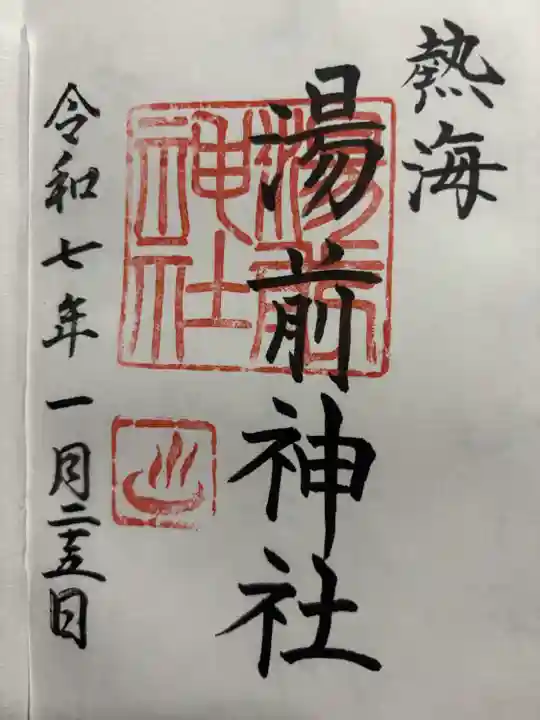 熱海
湯前神社
湯前神社
令和七年一月二十五日